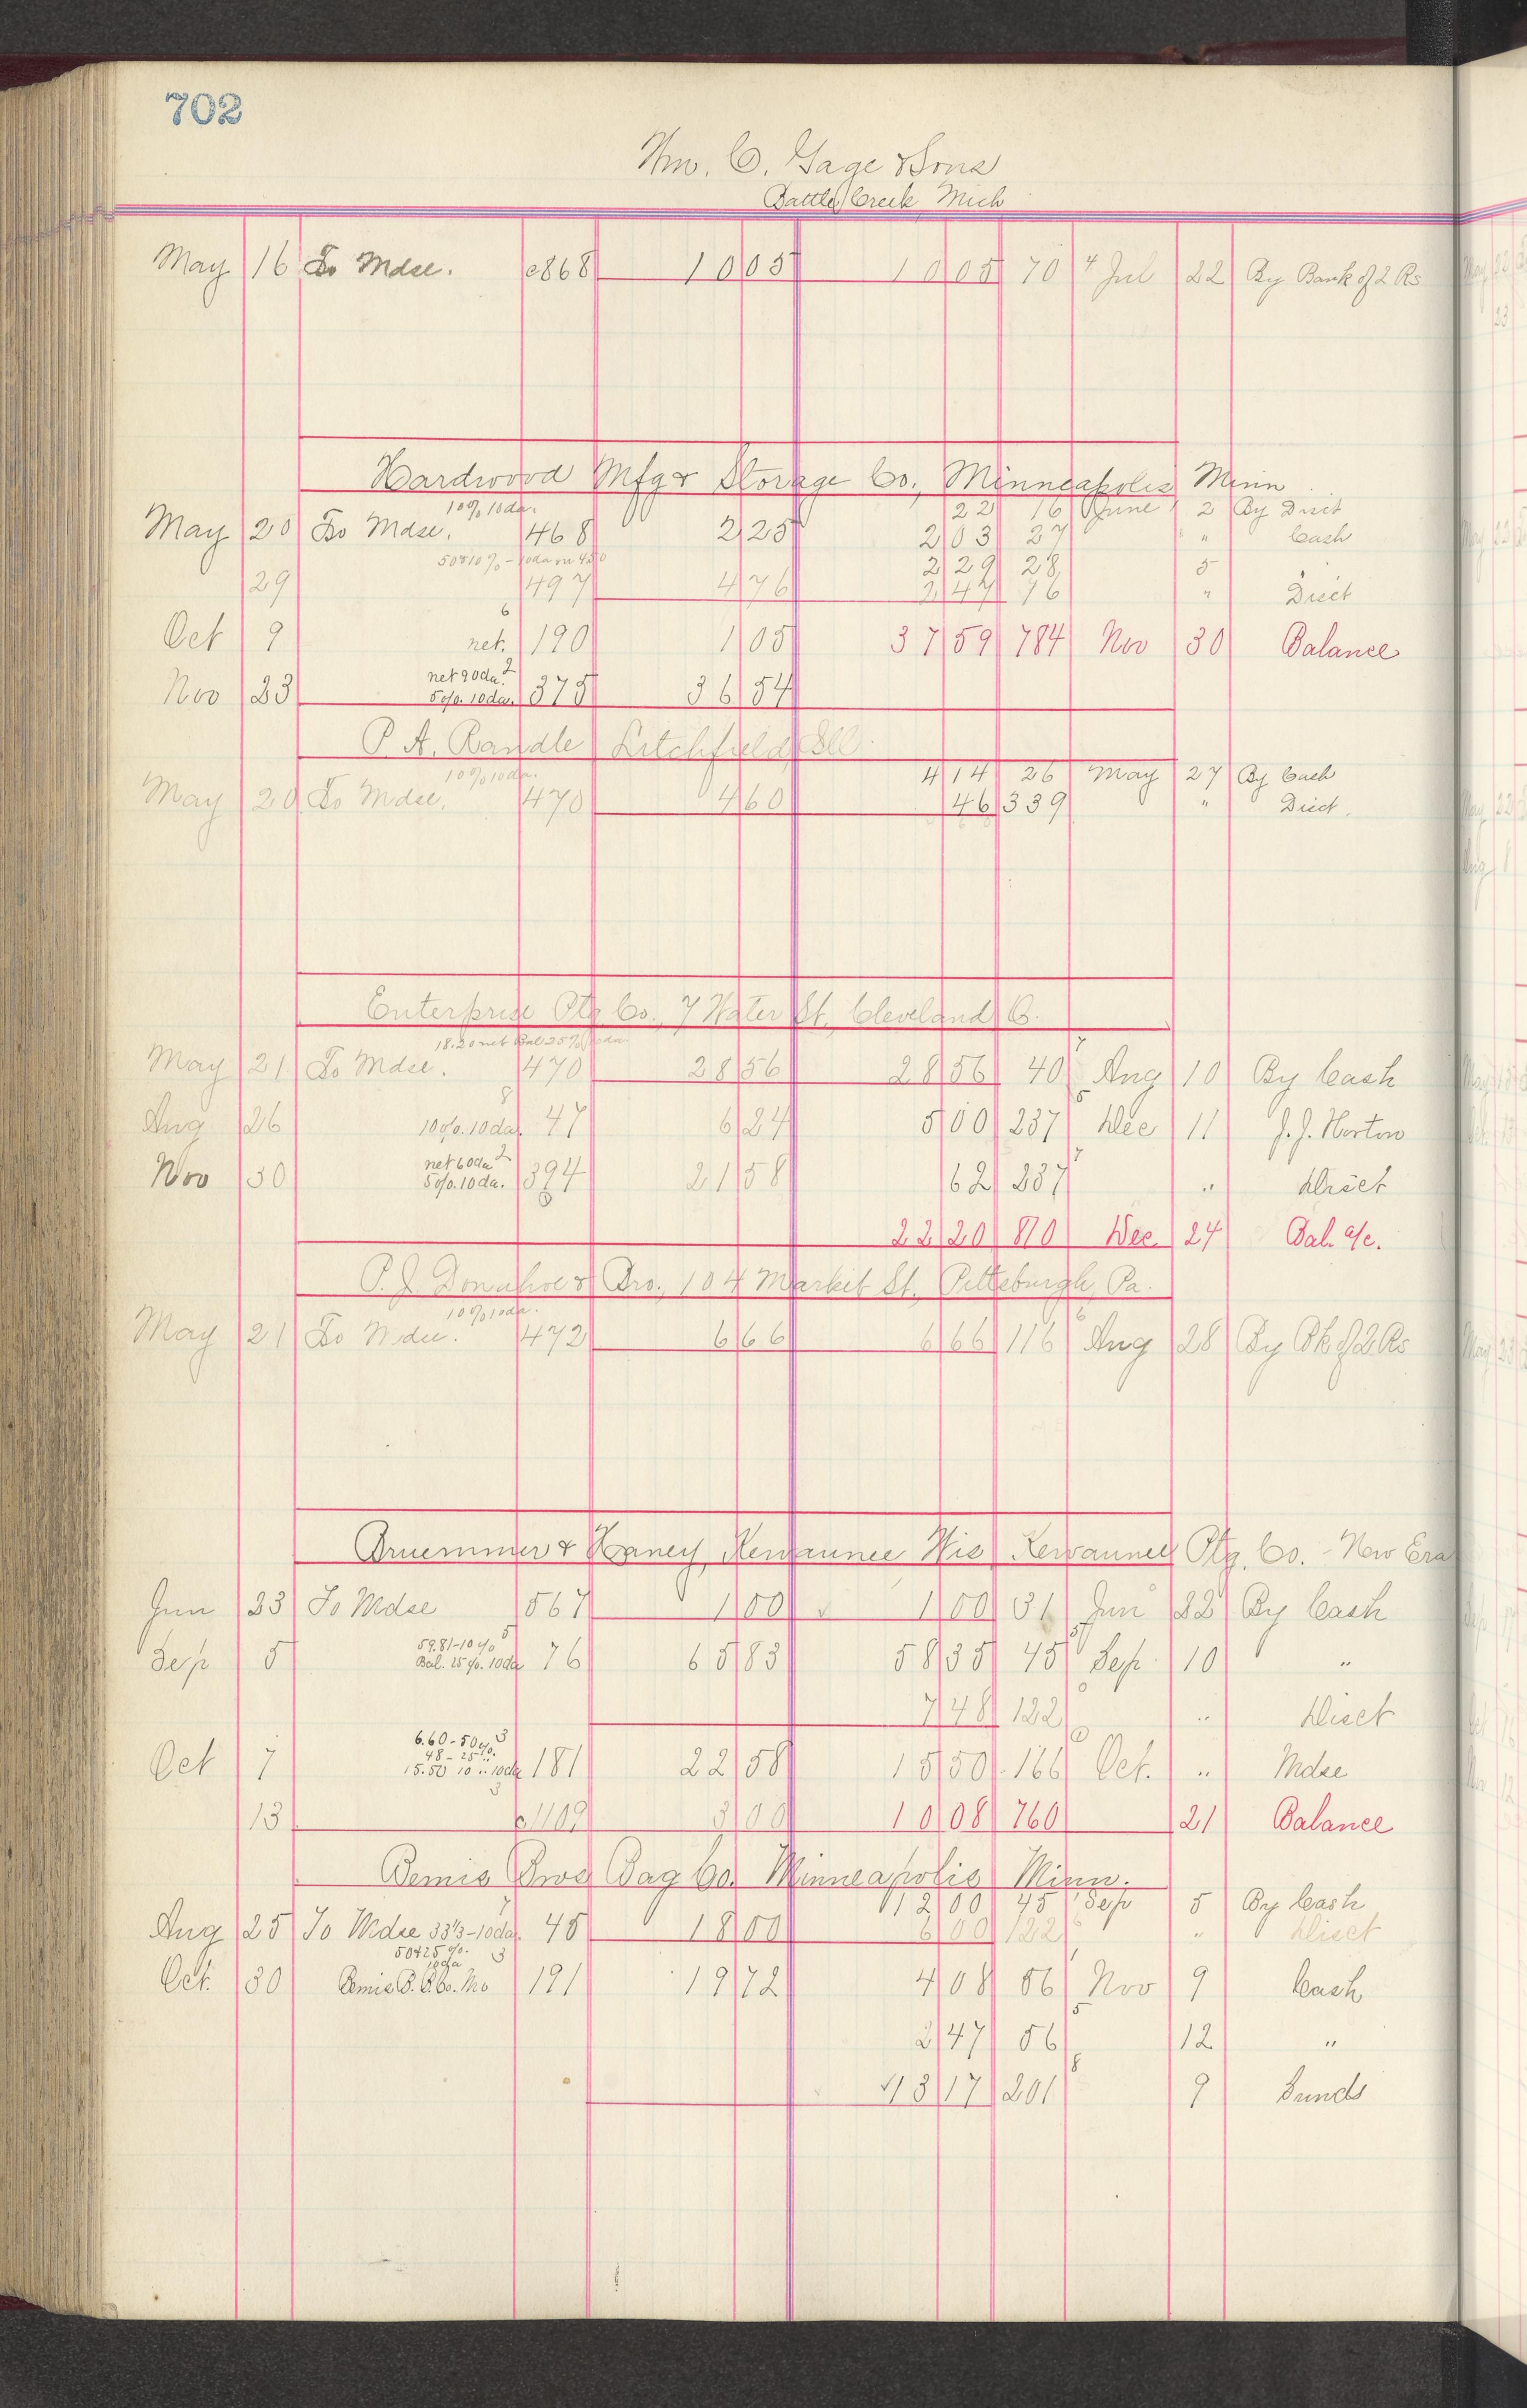 702
Wm. C. Gage & Sons
Battle Creek Mich
May 16 To Mdse. c868 10 05 10 05 70 4 Jul 22 By Bank of 2 Rs
Hardwood Mfg & Storage Co., Minneapolis Minn
10% 10da. 22 16 June 2 By Disct
May 20 To Mdse. 468 2 25 2 03 27 " Cash
50&10%-10da on 4.50 2 29 28 5
29 497 4 76 2 47 76 " Disct
Oct 9 net. 6 190 1 05 37 59 784 Nov 30 Balance
Nov 23 net 90da. 2
5%. 10da. 375 36 54
P. A. Randle Litchfield Ill.
10% 10da. 4 14 26 May 27 By Cash
May 20 To Mdse. 470 4 60 46 339 " Disct.
Enterprise Ptg. Co., 7 Water St. Cleveland O.
18.20 net Bal 25% 10da
May 21 To Mdse. 470 28 56 28 56 40 7 Aug 10 By Cash
Aug 26 10%. 10da. 8 47 6 24 5 00 237 5 Dec 11 J. J. Horton
Nov 30 net 60da 2
5%. 10da. 394 21 58 62 237 7 " Disct
22 20 810 Dec. 24 Bal. a/c.
P. J. Donahoe & Bro., 104 Market St. Pittsburgh, Pa.
10% 10da.
May 21 To Mdse. 472 6 66 6 66 116 6 Aug 28 By Bk of 2 Rs
Bruemmer & Haney, Kewaunee Wis Kewaunee Ptg. Co. - New Era
Jun 23 To Mdse 567 1 00 1 00 51 Jun 22 By Cash
Sep 5 59.81-10% 5
Bal. 25%. 10da 76 65 83 58 35 45 Sep. 10 "
7 48 122 " Disct
Oct 7 6.60-50%. 3
48-25 "
15.50 10 " 10da 181 22 58 15 50 166 Oct. " Mdse
13 c1109 3 00 10 08 760 21 Balance
Bemis Bros Bag Co. Minneapolis Minn.
12 00 45 Sep 5 By Cash
Aug 25 To Mdse 33⅓-10da. 7 45 18 00 6 00 122 " Disct
50&25%. 10da 3
Oct. 30 Bemis B. B. Co. Mo 191 19 72 4 08 56 Nov 9 Cash
2 47 56 5 12 "
13 17 201 8 9 Sunds